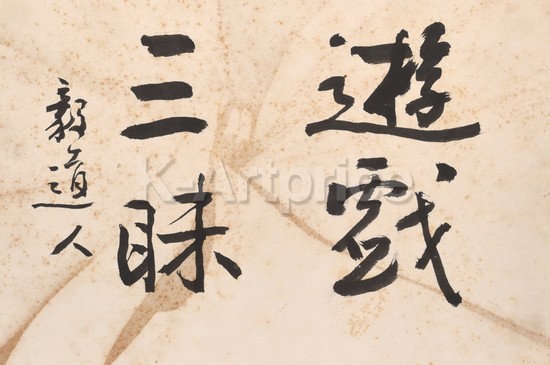 遊戯
三昧
毅道人
K-Artprice